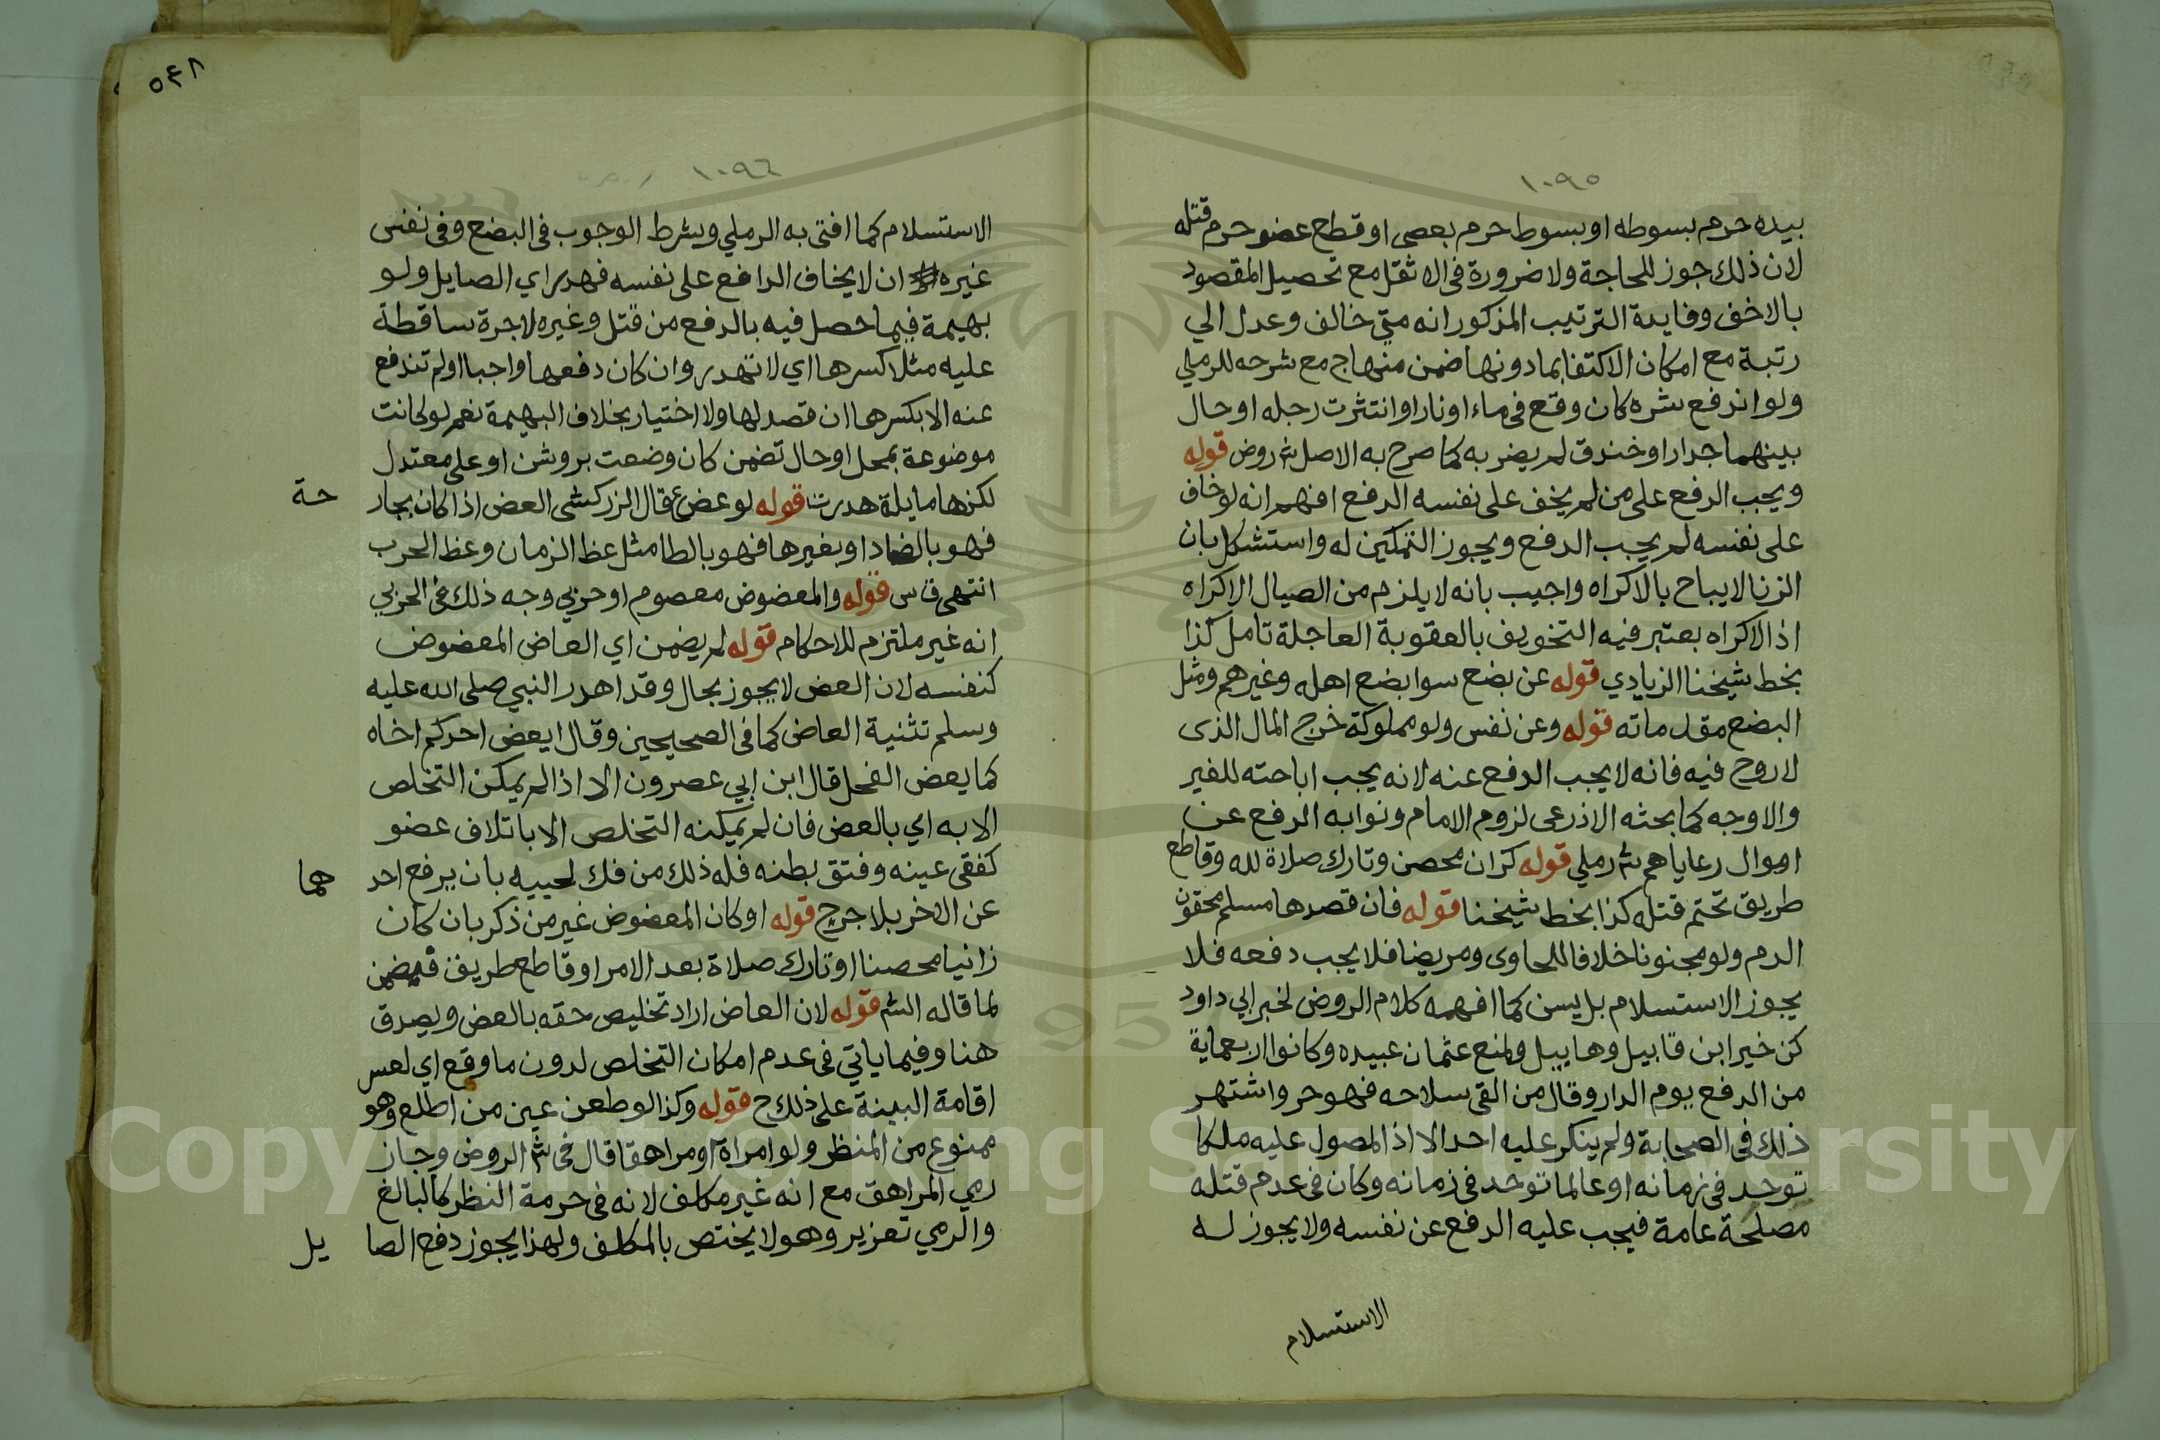 ١٠٩٥
بيده حرم بسوطه او بسوط حرم بعصى او قطع عضو حرم قتله
لان ذلك جوز للحاجة ولا ضرورة فى الاثقل مع تحصيل المقصود
بالاخف وفايدة الترتيب المذكور انه متي خالف وعدل الي
رتبة مع امكان الاكتفا بما دونها ضمن منهاج مع شرحه للرملي
ولو اندفع شره كان وقع فى ماء او نار او انتثرت رجله او حال
بينهما جدار او خندق لم يضربه كما صرح به الاصل ش روض قوله
ويجب الدفع على من لم يخف على نفسه الدفع افهم انه لو خاف
على نفسه لم يجب الدفع ويجوز التمكين له واستشكل بان
الزنا لا يباح بالاكراه واجيب بانه لا يلزم من الصيال الاكراه
اذ الاكراه يعتبر فيه التخويف بالعقوبة العاجلة تامل كذا
بخط شيخنا الزيادي قوله عن بضع سوا بضع اهله وغيرهم ومثل
البضع مقدماته قوله وعن نفس ولو مملوكة خرج المال الذى
لا روح فيه فانه لا يجب الدفع عنه لانه يجب اباحته للغير
والاوجه كما بحثه الاذرعى لزوم الامام ونوابه الدفع عن
اموال رعاياهم ش رملي قوله كزان محصن وتارك صلاة لله وقاطع
طريق تحتم قتله كذا بخط شيخنا قوله فان قصدها مسلم محقون
الدم ولو مجنونا خلافا للحاوى ومريضا فلا يجب دفعه فلا
يجوز الاستسلام بل يسن كما افهمه كلام الروض لخبر ابي داود
كن خير ابن قابيل وهابيل ولمنع عثمان عبيده وكانوا اربعماية
من الدفع يوم الدار وقال من القى سلاحه فهو حر واشتهر
ذلك فى الصحابة ولم ينكر عليه احد الا اذا المصول عليه ملكا
توحد فى زمانه او عالما توحد فى زمانه وكان فى عدم قتله
مصلحة عامة فيجب عليه الدفع عن نفسه ولا يجوز له
الاستسلام
٥٤٨
١٠٩٦
الاستسلام كما افتى به الرملي وشرط الوجوب فى البضع وفى نفس
غيره ان لا يخاف الدافع على نفسه فهدر اي الصايل ولو
بهيمة فيما حصل فيه بالدفع من قتل وغيره لا جرة ساقطة
عليه مثلا كسرها اي لا تهدر وان كان دفعها واجبا او لم تندفع
عنه الا بكسرها ان قصد لها ولا اختيار بخلاف البهيمة نعم لو كانت
موضوعة بمحل او حال تضمن كان وضعت بروشن او على معتدل
لكنها مايلة هدرت قوله لو عض ع قال الزركشى العض اذا كان بجار حة
فهو بالضاد او بغيرها فهو بالظا مثل عظ الزمان وعظ الحرب
انتهى ق س قوله والمعضوض معصوم او حربي وجه ذلك فى الحربي
انه غير ملتزم للاحكام قوله لم يضمن اي العاض المعضوض
كنفسه لان العض لا يجوز بحال وقد اهدر النبي صلى الله عليه
وسلم تثنية العاض كما فى الصحيحين وقال ايعض احدكم اخاه
كما يعض الفحل قال ابن ابي عصرون الا اذا لم يمكن التخلص
الا به اي بالعض فان لم يمكنه التخلص الا باتلاف عضو
كفقى عينه وفتق بطنه فله ذلك من فك لحييه بان يرفع احد هما
عن الاخر بلا جرح قوله او كان المعضوض غير من ذكر بان كان
زانيا محصنا او تارك صلاة بعد الامر او قاطع طريق فيضمن
لما قاله الش قوله لان العاض اراد تخليص حقه بالعض ويصدق
هنا وفيما ياتي فى عدم امكان التخلص لدون ما وقع اي لعسر
اقامة البينة على ذلك ح قوله وكذا لو طعن عين من اطلع وهو
ممنوع من المنظر ولو امراة او مراهقا قال فى ش الروض وجاز
رمي المراهق مع انه غير مكلف لانه فى حرمة النظر كالبالغ
والرمي تعزير وهو لا يختص بالمكلف ولهذا يجوز دفع الصا يل
Copyright © King Saud University